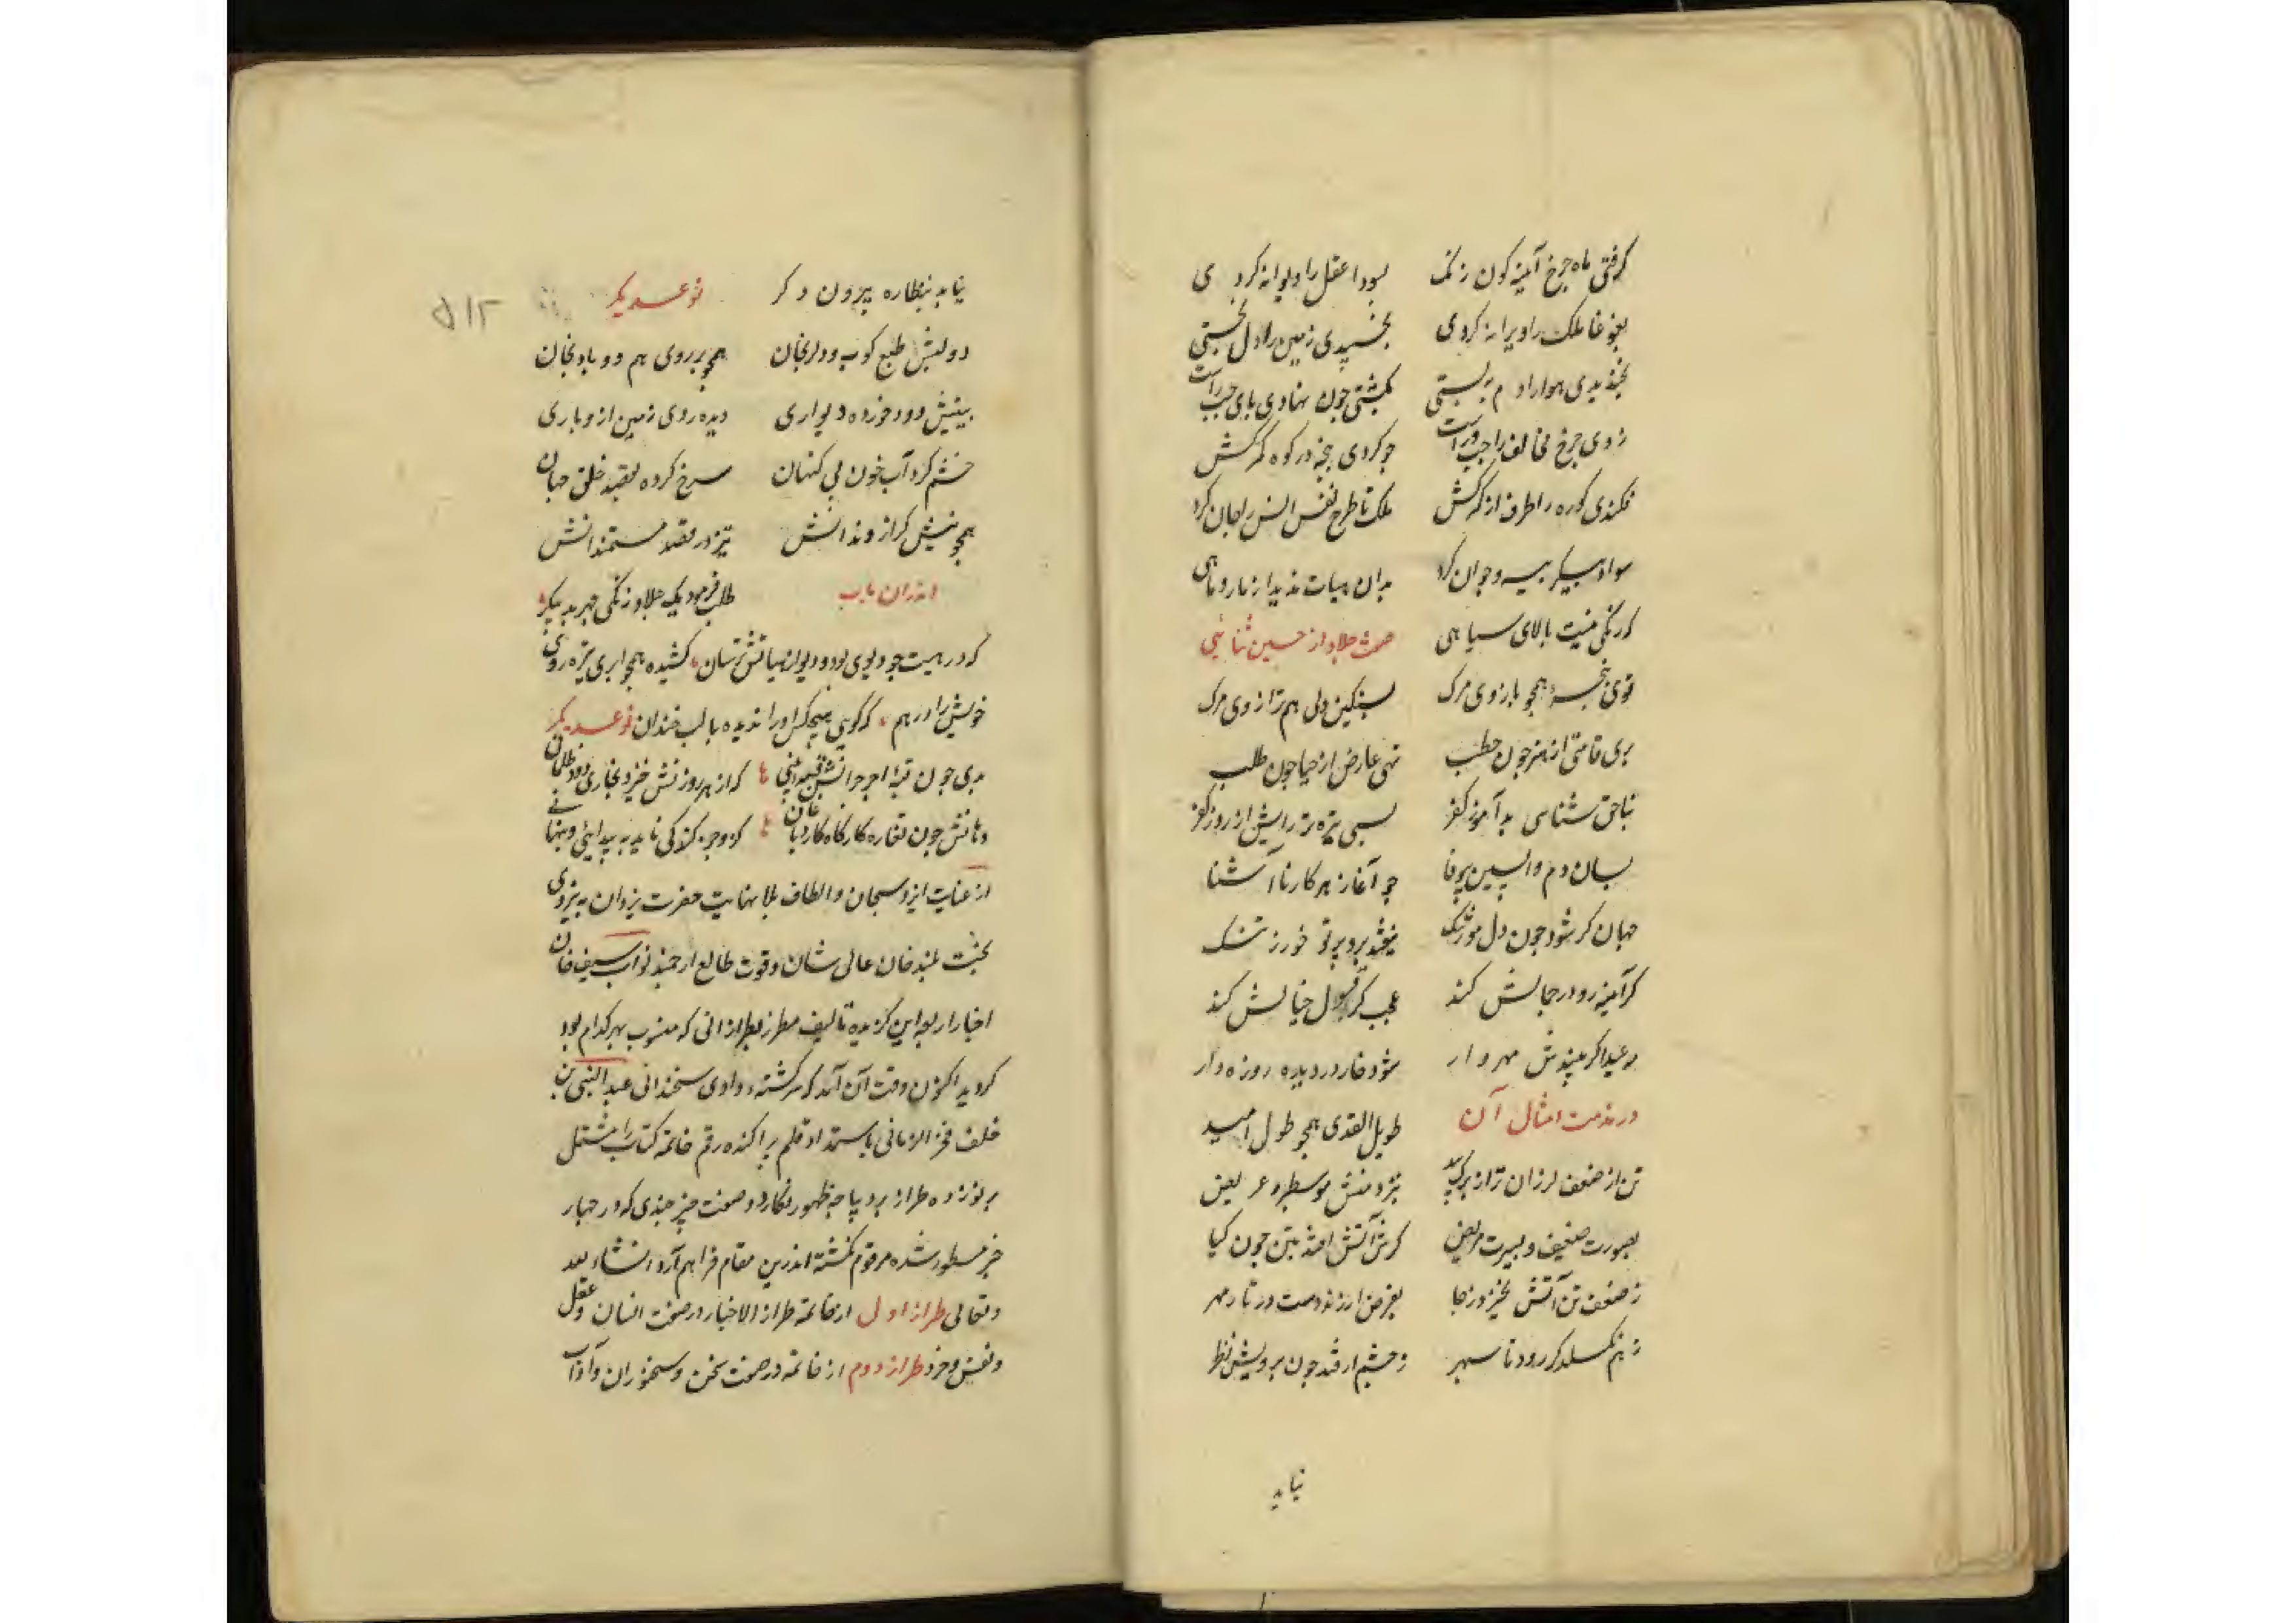 گرفتی ماه چرخ آینه گون زنگ بسودا عقل را دیوانه کردی
بغوغا ملک را ویرانه کردی بخسپیدی زمین را دل بخستی
بخندیدی هوا را دم ببستی بکشتی چون نهادی پای چپ راست
زدی چرخ مخالف را چپ و راست چو کردی پنجه در کوه کمرکش
فکندی کوه را طرف از کمرکش ملک تا طرح نفس انس و جان کرد
سواد پیکر وجوان کرد بدان هیأت ندید از مار و ماهی
که رنگی نیست بالای سیاهی صفت جلاد از حسین ثنائی
قوی پنجه همچو بازوی مرگ بسنگین دلی هم ترازوی مرگ
بری قامتی از هنر چون حطب تهی عارض از حیا چون طلب
بناحق شناسی بدآموز کفر بسی تیره تر رایش از روز کفر
بسان دم واپسین بیوفا چو آغاز هر کار ناآشنا
جهان گر شود چون دل مور تنگ نیفتد برو پرتو خور ز ننگ
گر آیینه رو در جمالش کند عجب گر قبول خیالش کند
بعید اگر بیندش مهروار شود خار در دیده روزه دار
در مذمت امثال آن طویل القدی همچو طول امید
تن از ضعف لرزان تر از برگ بید
بصورت ضعیف و بسیرت مریض گرش آتش افتد بتن چون گیا
ز ضعف تن آتش نخیزد ز جا بفرض ار زند دست در تار مهر
ز هم نگسلد گر رود تا سپهر ز چشم ار فتد چون برویش نظر
نیاید
نیاید بنظاره بیرون دگر نوعدیگر
۵۱۲
دو لبش طبع کوب و دلرنجان همچو بر روی هم دو بادنجان
بینیش دود خورده دیواری دیده روی زمین ازو باری
خشم کرد آب خون بی گنهان سرخ کرده بقصد خلق جهان
همچو نیش گراز دندانش تیز در قصد مستمندانش
اندران باب طلب فرمود یک جلاد زنگی چهر بد پیکر
که در هیبت چو دیوی بود و دیو از هیأتش ترسان کشیده همچو ابری تیره روی
خویش را در هم که گویی هیچکس او را ندیده با لب خندان نوعدیگر
بدی چون قبه که از هر روزنش خیزد بخاری دود ظلمانی
دهانش چون تغاره کارگاه
از عنایت ایزد سبحان و الطاف بلا نهایت حضرت یزدان به نیروی
بخت بلند خان عالی شان و قوت طالع ارجمند نواب سیف خان
اخبار اربعه این گزیده تألیف مطرز بطرازانی که منسوب بهر کدام بود
گردید اکنون وقت آن آمد که سرگشته وادی سخندانی عبد النبی بن
خلف فخر الزمانی باستمداد قلم پراکنده رقم خاتمه کتاب را مشتمل
بر پنج طراز بر دیباجه ظهور نگارد و صفت چیز چندی که در چهار
خبر مسطور شده مرقوم نگشته اندرین مقام فراهم آرد انشاء الله
وتعالی طراز اول از خاتمه طراز الاخبار در صفت انسان و عقل
و نفس و خرد طراز دوم از خاتمه در صفت سخن و سخنوران و آداب